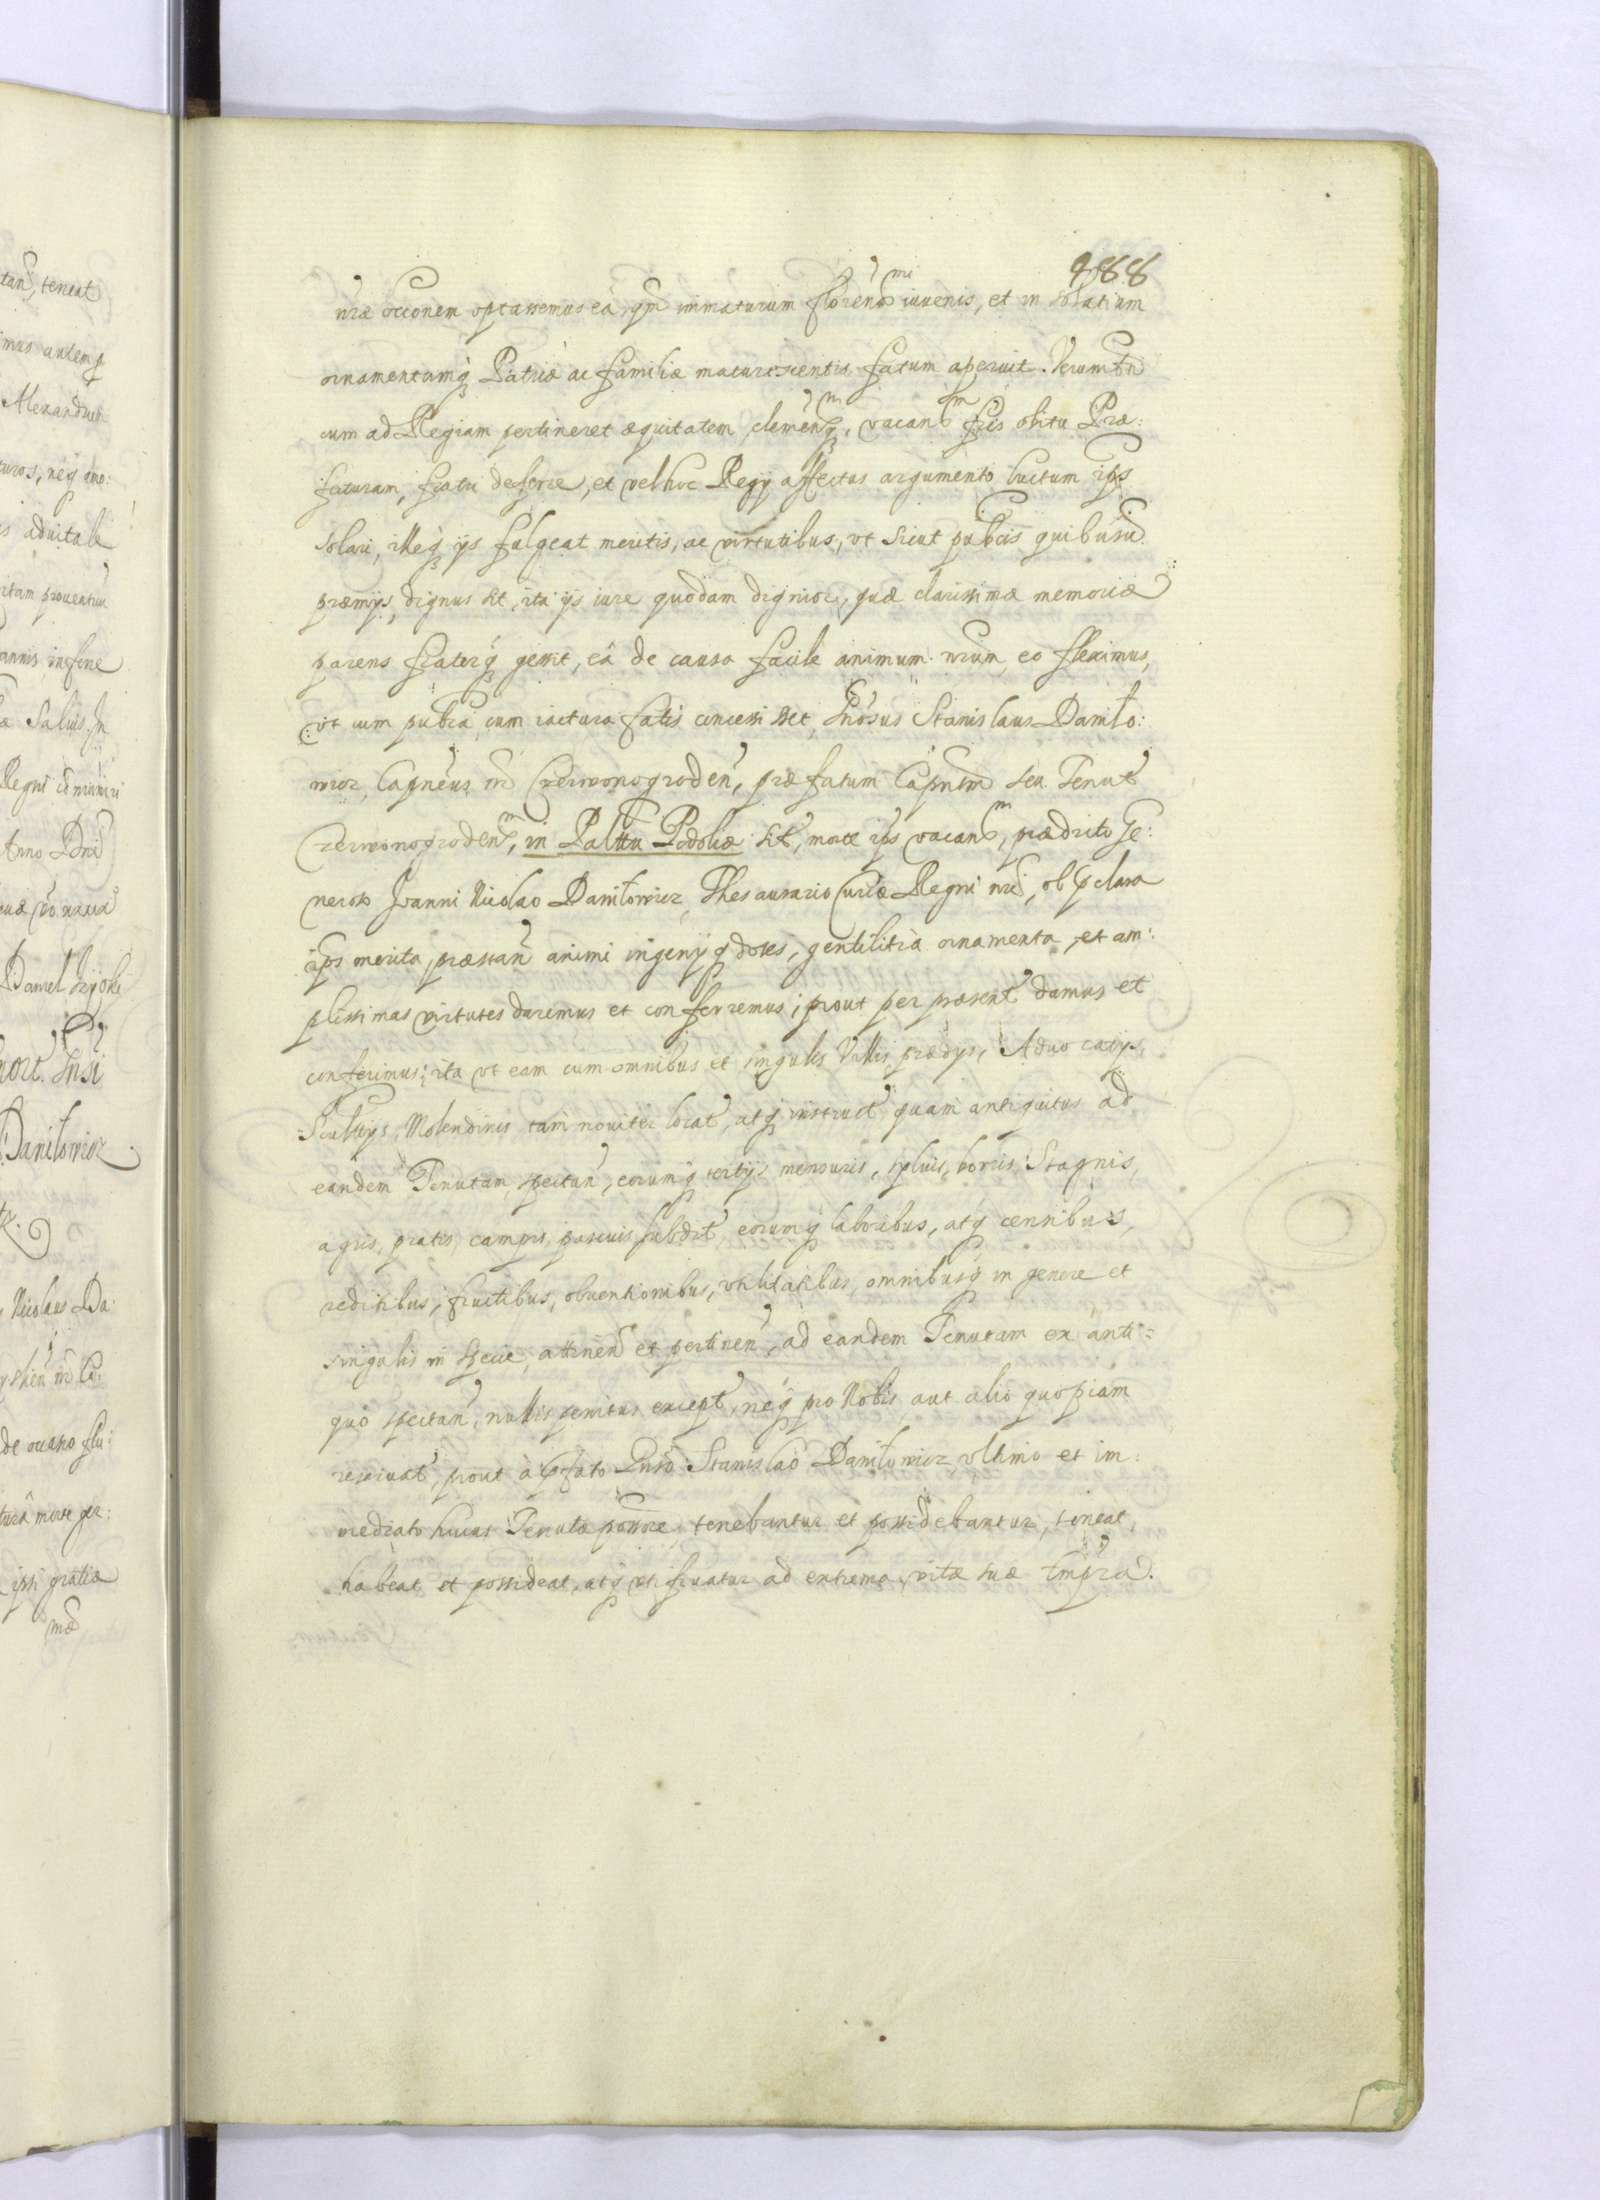 988
nræ occõnem optassemus eâ, qm̃ immaturum floren̄ iuvenis, et in solatium
ornamentumq̃ Patriæ ac familiæ maturescentis fatum aperuit. Verumt̃n
cum ad Regiam pertineret æquitatem clemen̄q̃, vacan̄ fr̃is obitu Præ:
fecturam, fratri deferre, et vel hoc Regij affectus argumento luctum ip̃s
solari, illeq̃ ijs fulgeat meritis, ac virtutibus, vt sicut pub̃cis quibusu̇
præmijs, dignus sit, ita ijs iure quodam dignior, quæ clarissimæ memoriæ
parens fraterq̃ gessit, eâ de causa facile animum nr̃um eo fleximus,
vt cum pub̃ca cum iactura fatis concessisset, Gn̄osus Stanislaus Daniło:
wicz, Capneus nr̃ Czerwonogroden̄, præfatum Capn̄tm seu Tenut̄
Czerwonogroden̄, in Palttu Podoliæ sit̄, morte ip̃s vacan̄, prædicto Ge:
neroso Joanni Nicolao Daniłowicz, Thesaurario Curiæ Regni nr̃i, ob p̃clara
ip̃s merita, præstan̄ animi ingenijq̃ dotes, gentilitia ornamenta, et am:
plissimas virtutes daremus et conferremus; prout per præsent̄ damus et
conferimus; ita vt eam cum omnibus et singulis Villis, prædijs, Aduocatijs,
Scultijs, Molendinis tam nouiter locat̄, atq̃ instruct̄ quam antiquitus ad
eandem Tenutam spectan̄, eorumq̃ tertijs mensuris, syluis, borris, Stagnis,
agris, pratis, campis, pascuis, subdit̄, eorumq̃ laboribus, atq̃ censibus,
reditibus, fructibus, obuentionibus, vtilitatibus, omnibusq̃ in genere et
singulis in specie, attinen̄ et pertinen̄, ad eandem Tenutam ex anti:
quo spectan̄, nullis penitus except̄, neq̃ pro Nobis aut alio quopiam
reseruat̄, prout à p̃fato Gn̄so Stanislao Daniłowicz, vltimo et im:
mediato huius Tenutæ poss̃ore, tenebantur et possidebantur, teneat,
habeat et possideat, atq̃ vtifruatur ad extrema vitæ suæ tmp̃ra.